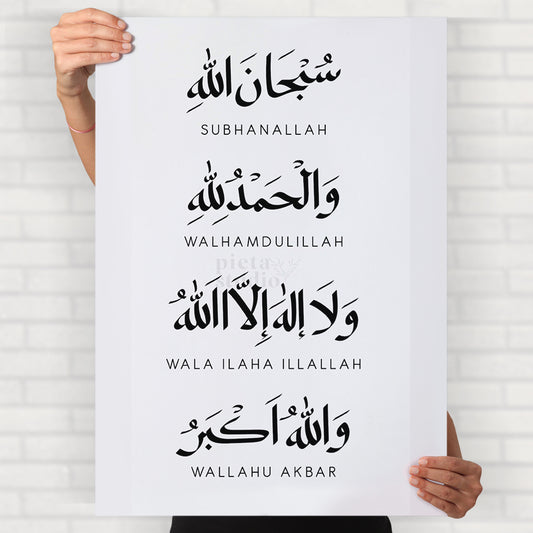 سُبْحَانَ اللهِ
SUBHANALLAH
وَالْحَمْدُ لِلهِ
WALHAMDULILLAH
pieta
studio
وَلَا إِلهَ إِلَّا اللهُ
WALA ILAHA ILLALLAH
وَاللهُ أَكْبَرُ
WALLAHU AKBAR